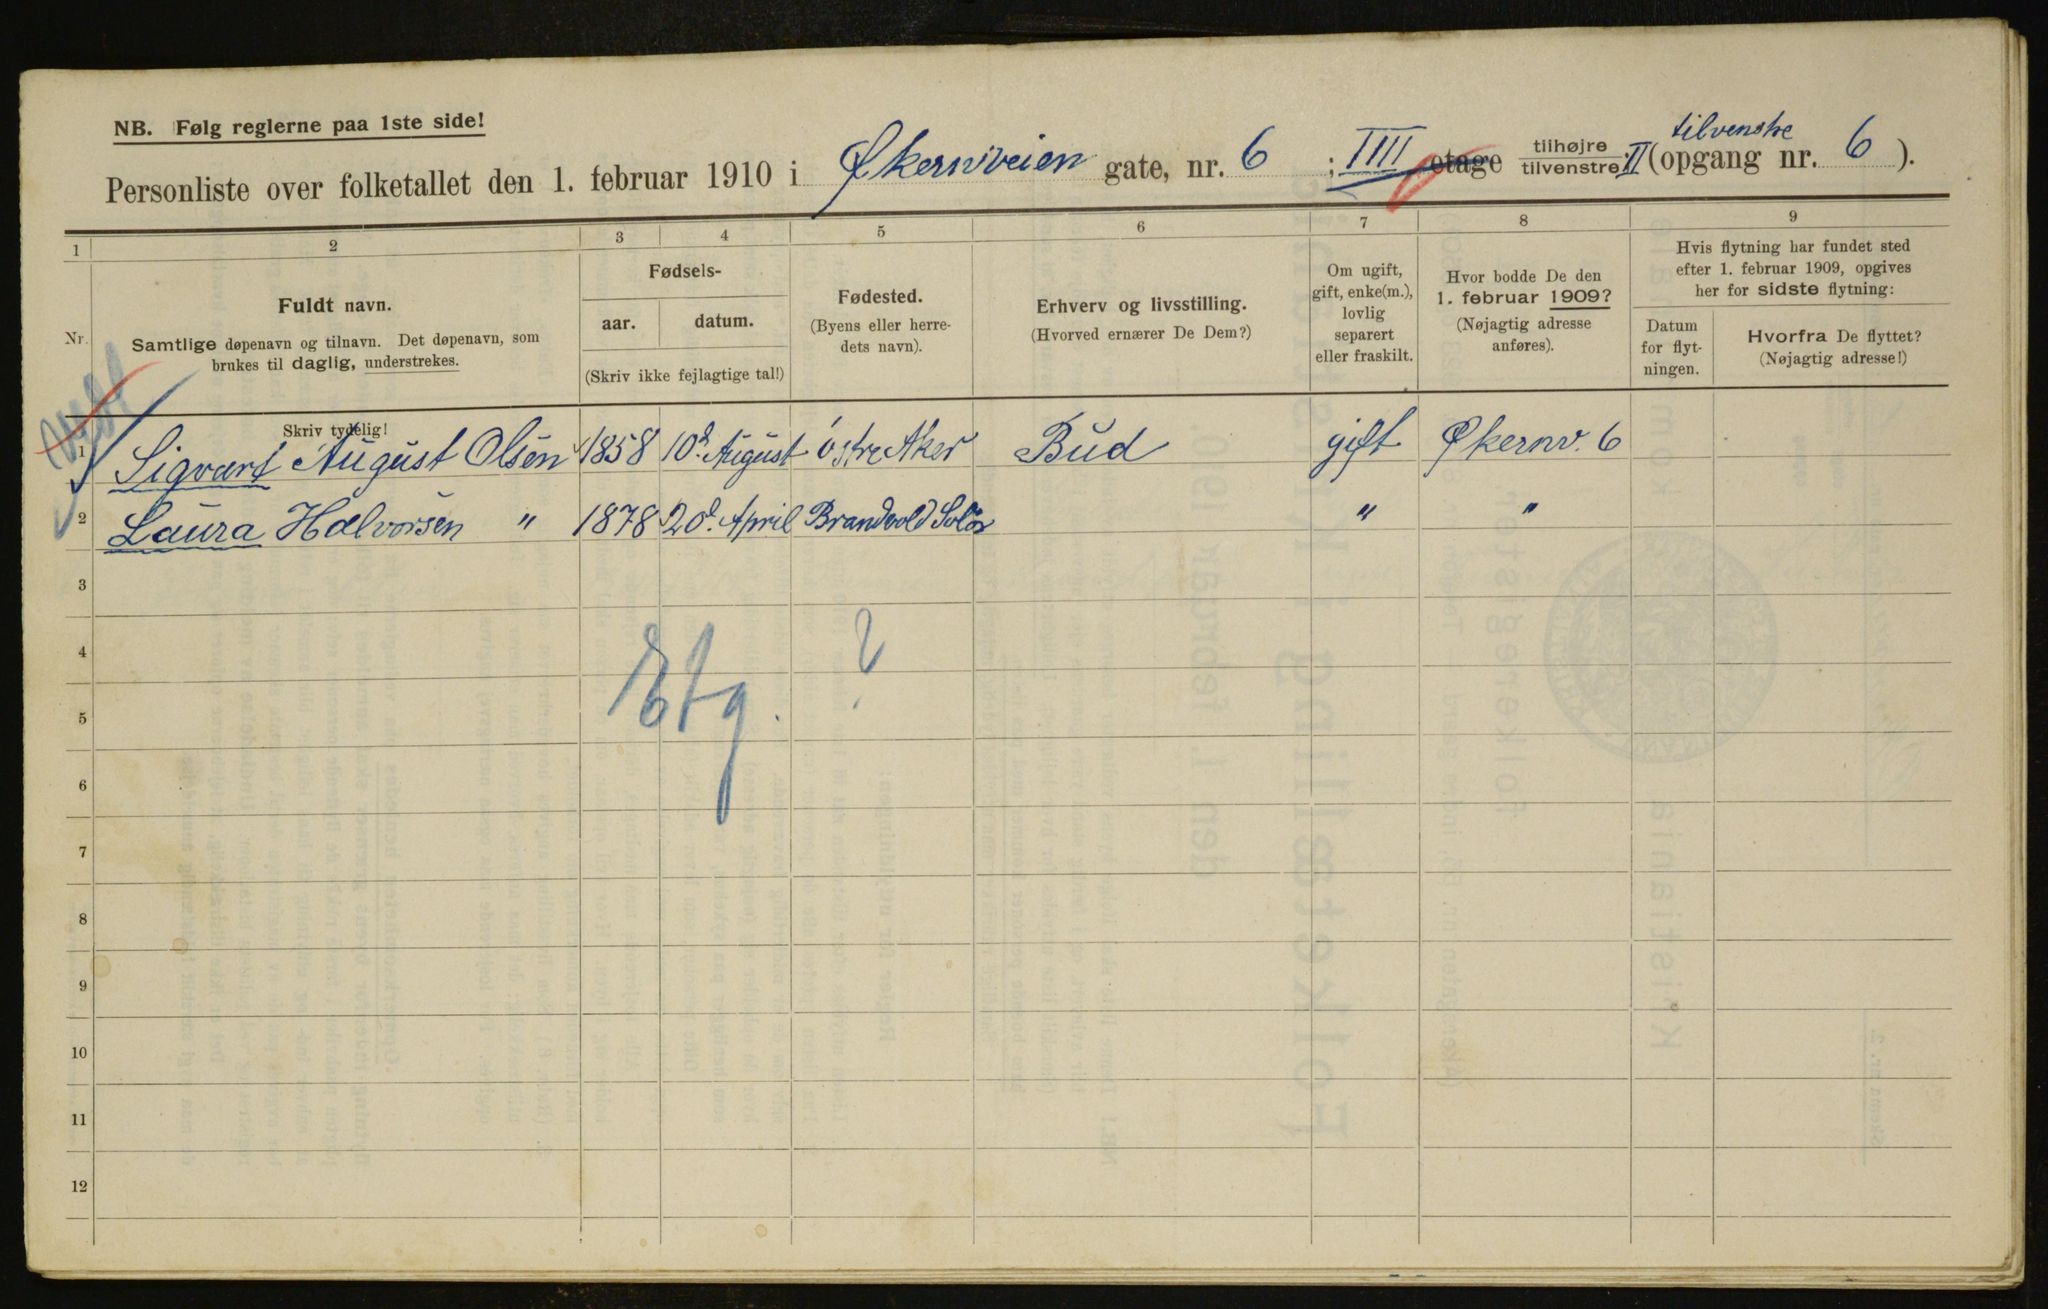 NB. Følg reglerne paa 1ste side!
Personliste over folketallet den 1. februar 1910 i Økernveien gate, nr. 6 ; IIII etage tilhøjre tilvenstre II tilvenstre (opgang nr. 6 ).
1 2 3 4 5 6 7 8 9
Nr.
Fuldt navn.
Samtlige døpenavn og tilnavn. Det døpenavn, som
brukes til daglig, understrekes.
Skriv tydelig!
Fødsels-
aar. datum.
(Skriv ikke fejlagtige tal!)
Fødested.
(Byens eller herre-
dets navn).
Erhverv og livsstilling.
(Hvorved ernærer De Dem?)
Om ugift,
gift, enke(m.),
lovlig
separert
eller fraskilt.
Hvor bodde De den
1. februar 1909?
(Nøjagtig adresse
anføres).
Hvis flytning har fundet sted
efter 1. februar 1909, opgives
her for sidste flytning:
Datum
for flyt-
ningen.
Hvorfra De flyttet?
(Nøjagtig adresse!)
1 Sigvart August Olsen 1858 10d. August östre Aker Bud gift Økernv. 6
2 Laura Halvorsen " 1878 20d. April Brandvold Solör " "
3
4
Etg. ?
5
6
7
8
9
10
11
12